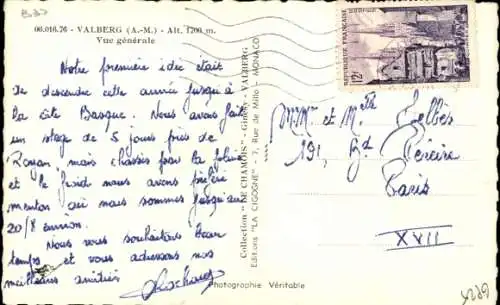 06.016.26 - VALBERG (A.-M.) - Alt. 1700 m.
Vue générale
Notre première idée était
de descendre cette année jusqu'à
la côte Basque. Nous avons fait
un stage de 5 jours près de
Royan mais chassés par la pluie
et le froid nous avons préféré
monter où nous sommes jusqu'au
20/8 environ.
Nous vous souhaitons beau
temps et vous adressons nos
meilleures amitiés
Collection "LE CHAMOIS" - VALBERG
Editions "LA CIGOGNE" - 7, Rue de Millo - MONACO
REPUBLIQUE FRANÇAISE
12F
et Mlle
191, Bd Pereire
Paris
XVII
Photographie Véritable